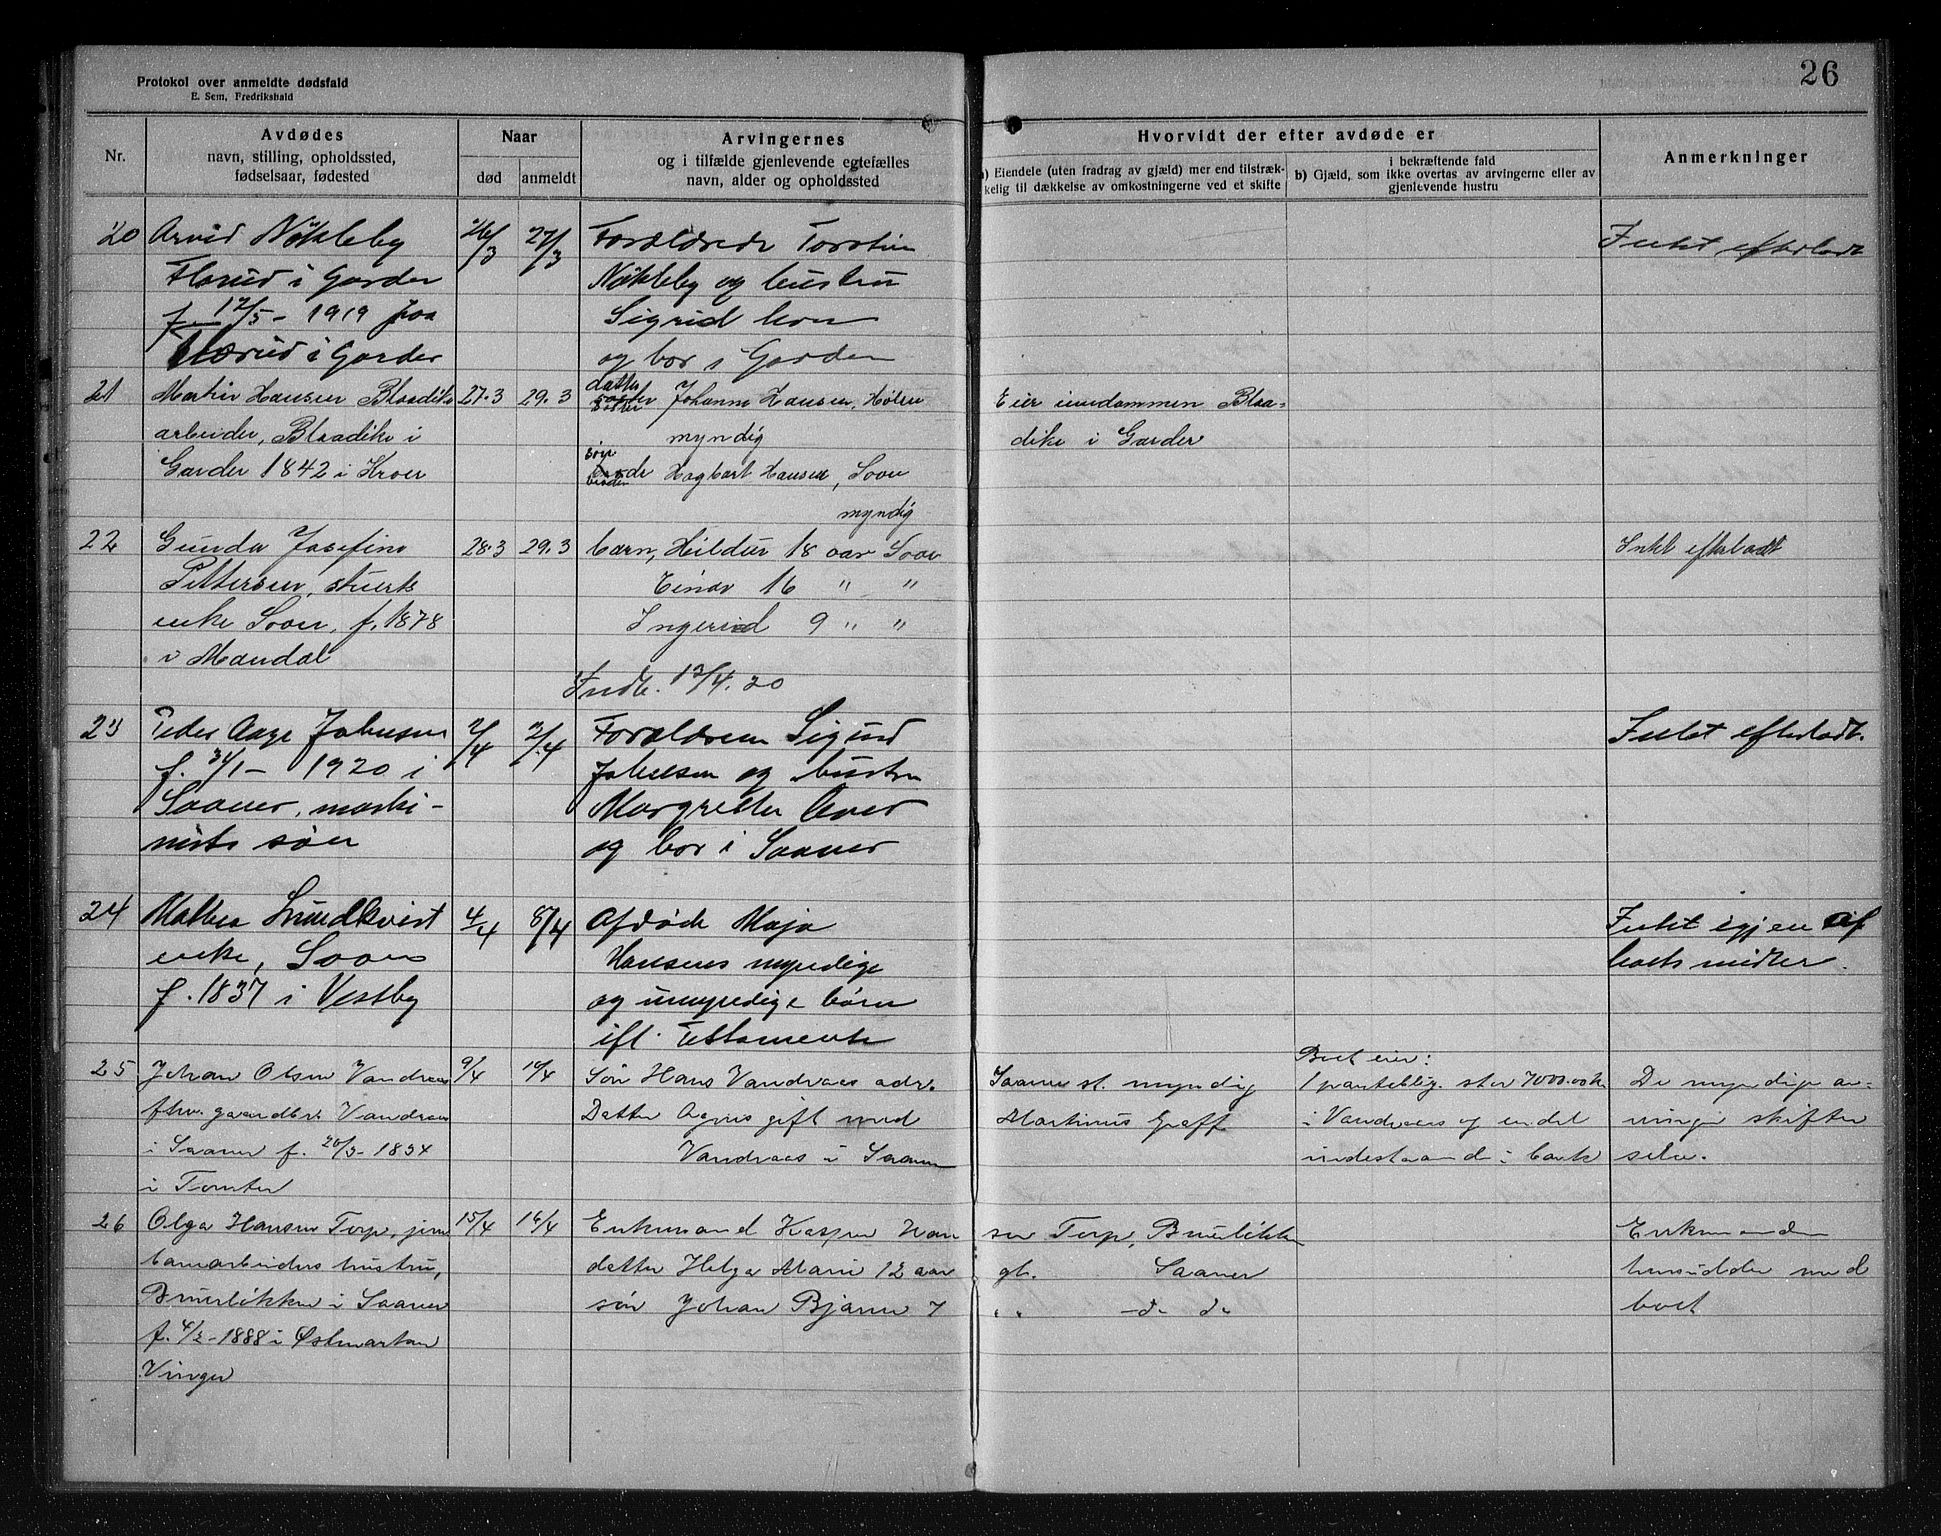 Protokol over anmeldte dødsfald
E. Sem, Fredrikshald
26
Nr.
Avdødes
navn, stilling, opholdssted,
fødselsaar, fødested
Naar
død
anmeldt
Arvingernes
og i tilfælde gjenlevende egtefælles
navn, alder og opholdssted
Hvorvidt der efter avdøde er
a) Eiendele (uten fradrag av gjæld) mer end tilstræk-
kelig til dækkelse av omkostningerne ved et skifte
i bekræftende fald
b) Gjæld, som ikke overtas av arvingerne eller av
gjenlevende hustru
Anmerkninger
20 Arvid Nökleby 26/3 27/3 Forældrede Torstein Intet efterladt
i Garder Nökleby og hustru
f 12/5 - 1919 paa Sigrid
i Garder og bor i Garder
21 Martin Hansen Blaadike 27.3 29.3 datter Johanne Hansen, Hölen Eier eiendommen Blaa-
arbeider, Blaadike i myndig dike i Garder
Garder 1842 i Kroer søn Hagbart Hansen, Soon
myndig
22 Gunda Josefine 28.3 29.3 barn, Hildur 18 aar Soon Intet efterladt
Pettersen, stuerts Einar 16 " "
enke Soon, f. 1878 Ingerid 9 " "
i Mandal
Indb. 12/4.20
23 Peder Aage Johnsen 2/4 2/4 Forældrene Sigurd Intet efterladt.
f. 31/1 - 1920 i Johnsen og hustru
Saaner, maski- Margrethe
nists søn og bor i Saaner
24 Mathea Lundkvist 4/4 8/4 Afdöde Maja Intet igjen af
enke, Soon Hansens myndige boets midler.
f. 1837 i Vestby og umyndige börn
ifl. Testamente
25 Johan Olsen Vandraas 9/4 10/4 Søn Hans Vandraas adr. Saaner st. myndig
Boet eier:
1 panteoblig. stor 7000.00 kr De myndige ar-
fhv. gaardbr. Vandraas Datter Agnes gift med Martinus Graff i Vandraas og endel vinger skifter
i Saaner f. 20/3 - 1834 Vandraas i Saaner indestaaende i bank selv.
i Tomter
26 Olga Hansen Torp, jern 15/4 16/4 Enkemand Kasper Han sen Torp, Bruerløkken Enkemanden
banearbeiders hustru, datter Helga Marie 12 aar gl. Saaner hensidder med
Bruerløkken i Saaner søn Johan Bjarne 7 " " - d- d- boet
f. 4/2 - 1888 i Østmarken
Vinger